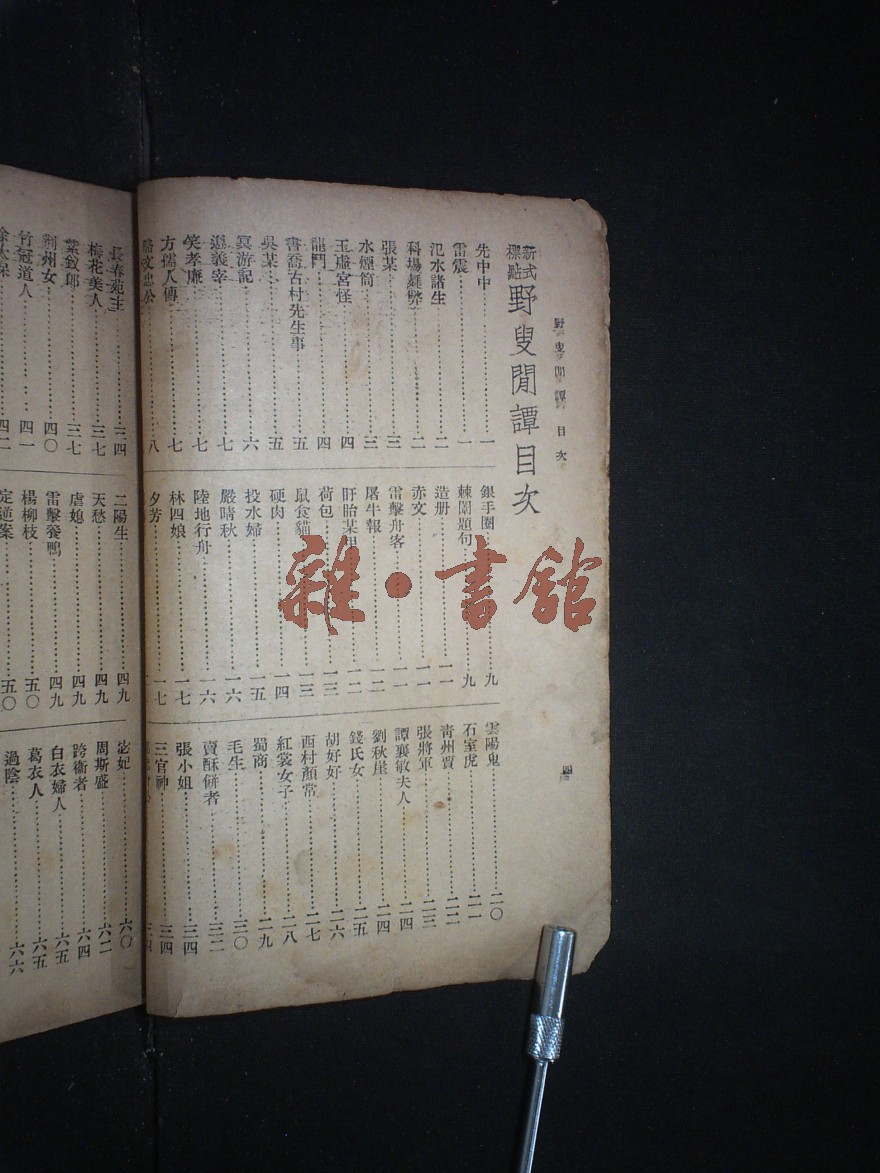 野叟閒譚 目次
新式標點 野叟閒譚目次
先中中……一
雷震……一
氾水諸生……二
科場舞弊……二
張某……三
水煙筒……三
玉虛宮怪……四
龍鬥……四
書喬古村先生事……五
吳某……五
冥游記……六
邀義宰……七
笑孝廉……七
方孺人傳……七
駱文忠公……八
銀手圈……九
棘闈題句……九
造册……一一
赤文……一一
雷擊舟客……一一
屠牛報……一二
盱眙某甲……一二
荷包……一三
鼠食貓……一三
硬肉……一四
投水婦……一五
嚴晴秋……一六
陸地行舟……一六
林四娘……一七
夕芳……一七
雲陽鬼……二〇
石室虎……二一
青州賈……二二
張將軍……二三
譚襄敏夫人……二四
劉秋崖……二四
錢氏女……二五
胡好好……二六
西村顏常……二七
紅裳女子……二八
蜀商……二九
毛生……三〇
賣酥餅者……三二
張小姐……三四
三官神……三四
四
長春苑主……三四
梅花美人……三七
葉敘郎……三七
荆州女……四〇
竹冠道人……四一
徐太保……四二
二陽生……四九
天愁……四九
虐媳……四九
雷擊養鴨……四九
楊柳枝……五〇
定逆案……五〇
宓妃……六〇
周斯盛……六二
跨衞者……六四
白衣婦人……六五
葛衣人……六五
過陰……六六
雜·書舘